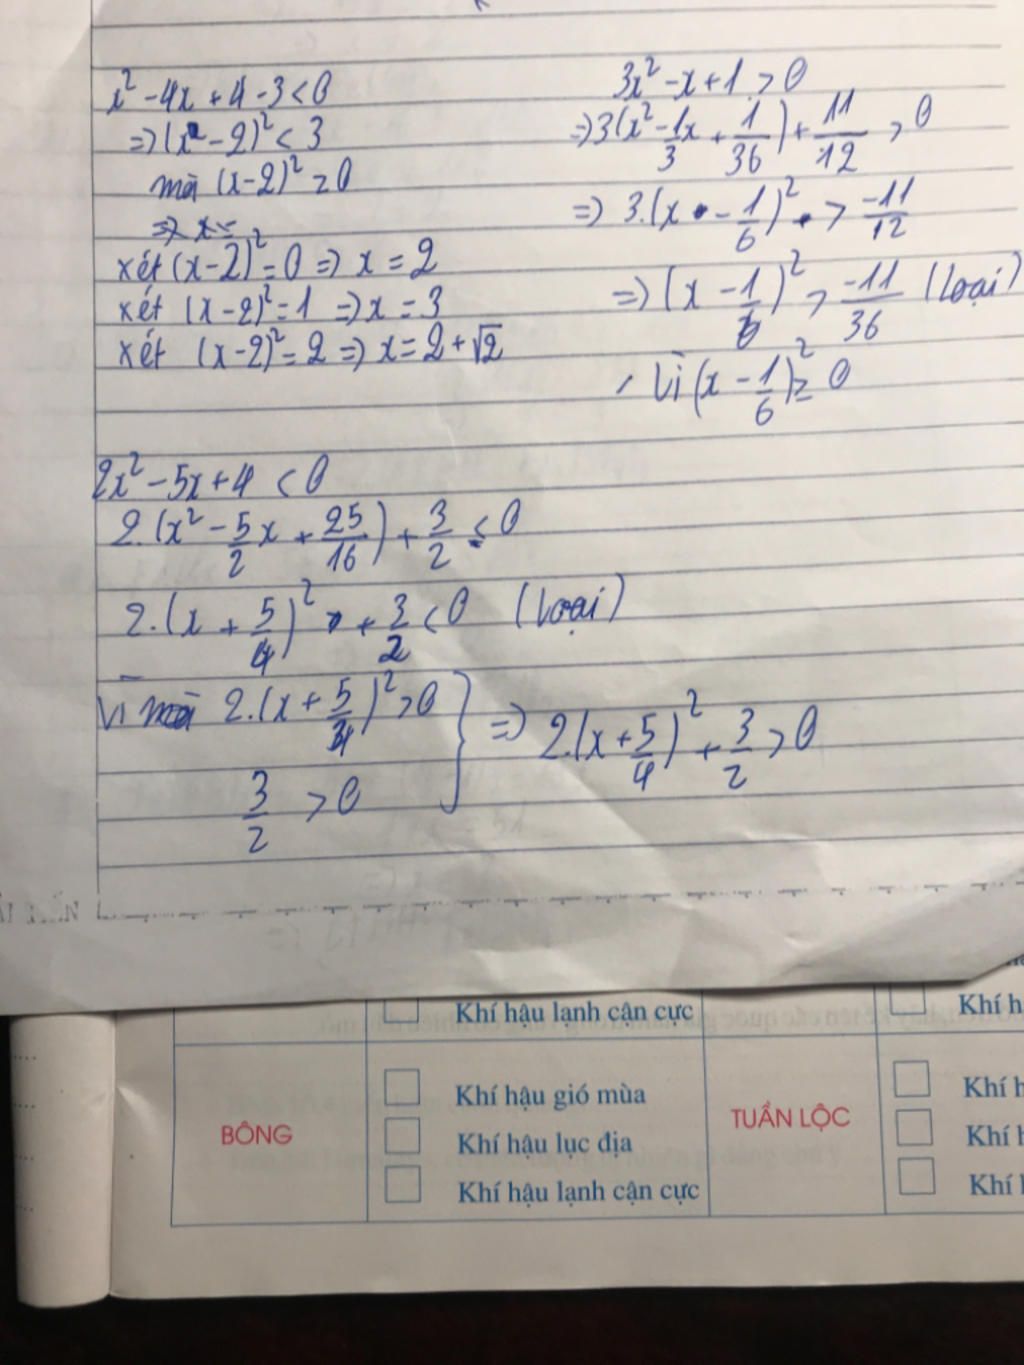 x² - 4x + 4 - 3 < 0
=> (x - 2)² < 3
mà (x-2)² ≥ 0
=> x =
xét (x-2)² = 0 => x = 2
xét (x-2)² = 1 => x = 3
xét (x-2)² = 2 => x = 2 + √2
3x² - x + 1 > 0
=> 3(x² - 1/3 x + 1/36) + 11/12 > 0
=> 3.(x - 1/6)² > -11/12
=> (x - 1/6)² > -11/36 (loại)
, Vì (x - 1/6)² ≥ 0
2x² - 5x + 4 < 0
2.(x² - 5/2 x + 25/16) + 3/2 < 0
2.(x + 5/4)² + 3/2 < 0 (loại)
Vì mà 2.(x + 5/4)² > 0
3/2 > 0
} => 2.(x + 5/4)² + 3/2 > 0
Khí hậu lạnh cận cực
Khí h
BÔNG
Khí hậu gió mùa
Khí hậu lục địa
Khí hậu lạnh cận cực
TUẦN LỘC
Khí h
Khí h
Khí h